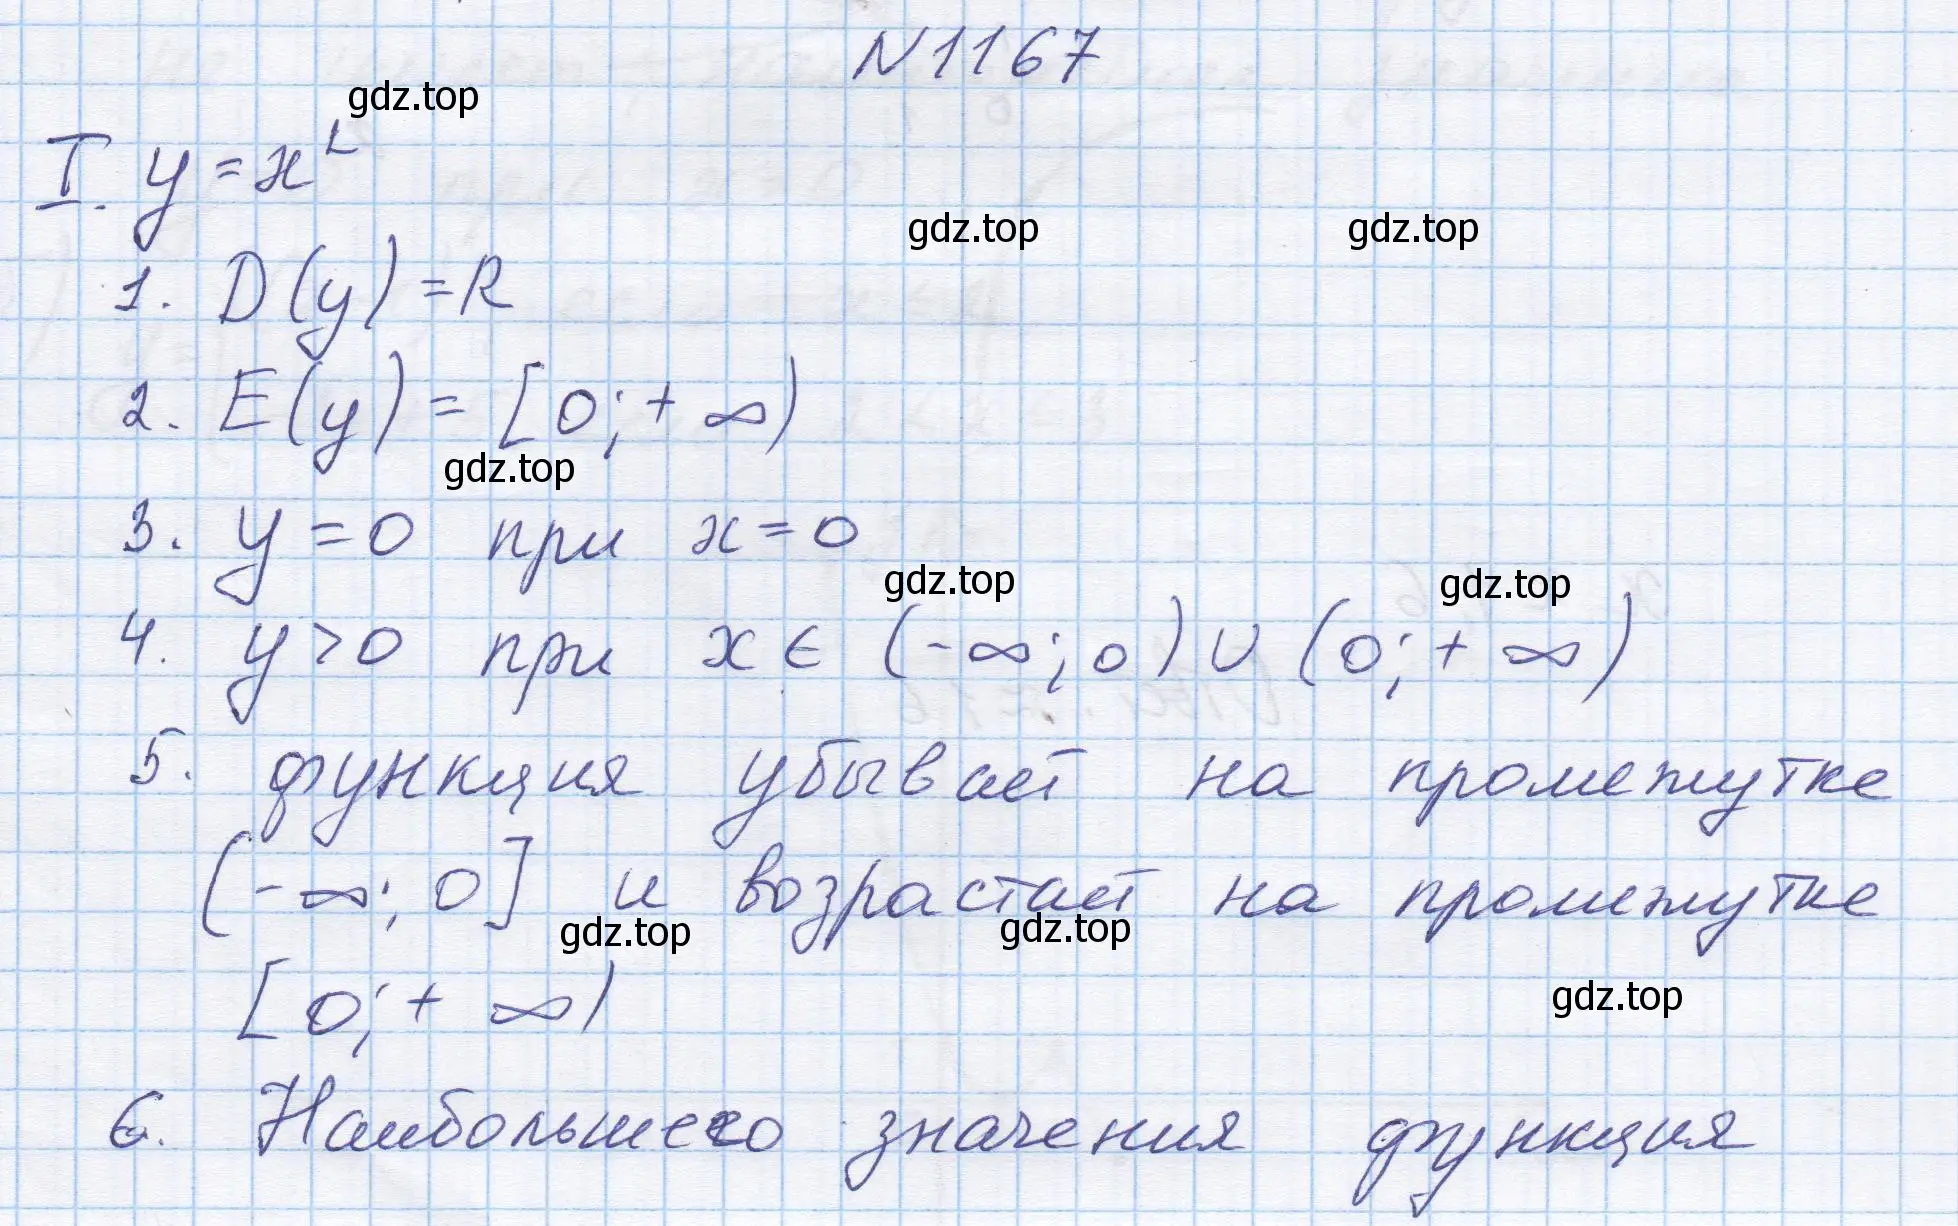 N1167
gdz.top
I. y = x²
gdz.top gdz.top
1. D(y) = R
2. E(y) = [0; + ∞)
gdz.top
3. y = 0 при x = 0
gdz.top gdz.top
4. y > 0 при x ∈ (-∞; 0) ∪ (0; + ∞)
5. функция убывает на промежутке
(-∞; 0] и возрастает на промежутке
gdz.top gdz.top
[0; + ∞)
gdz.top
6. Наибольшего значения функция